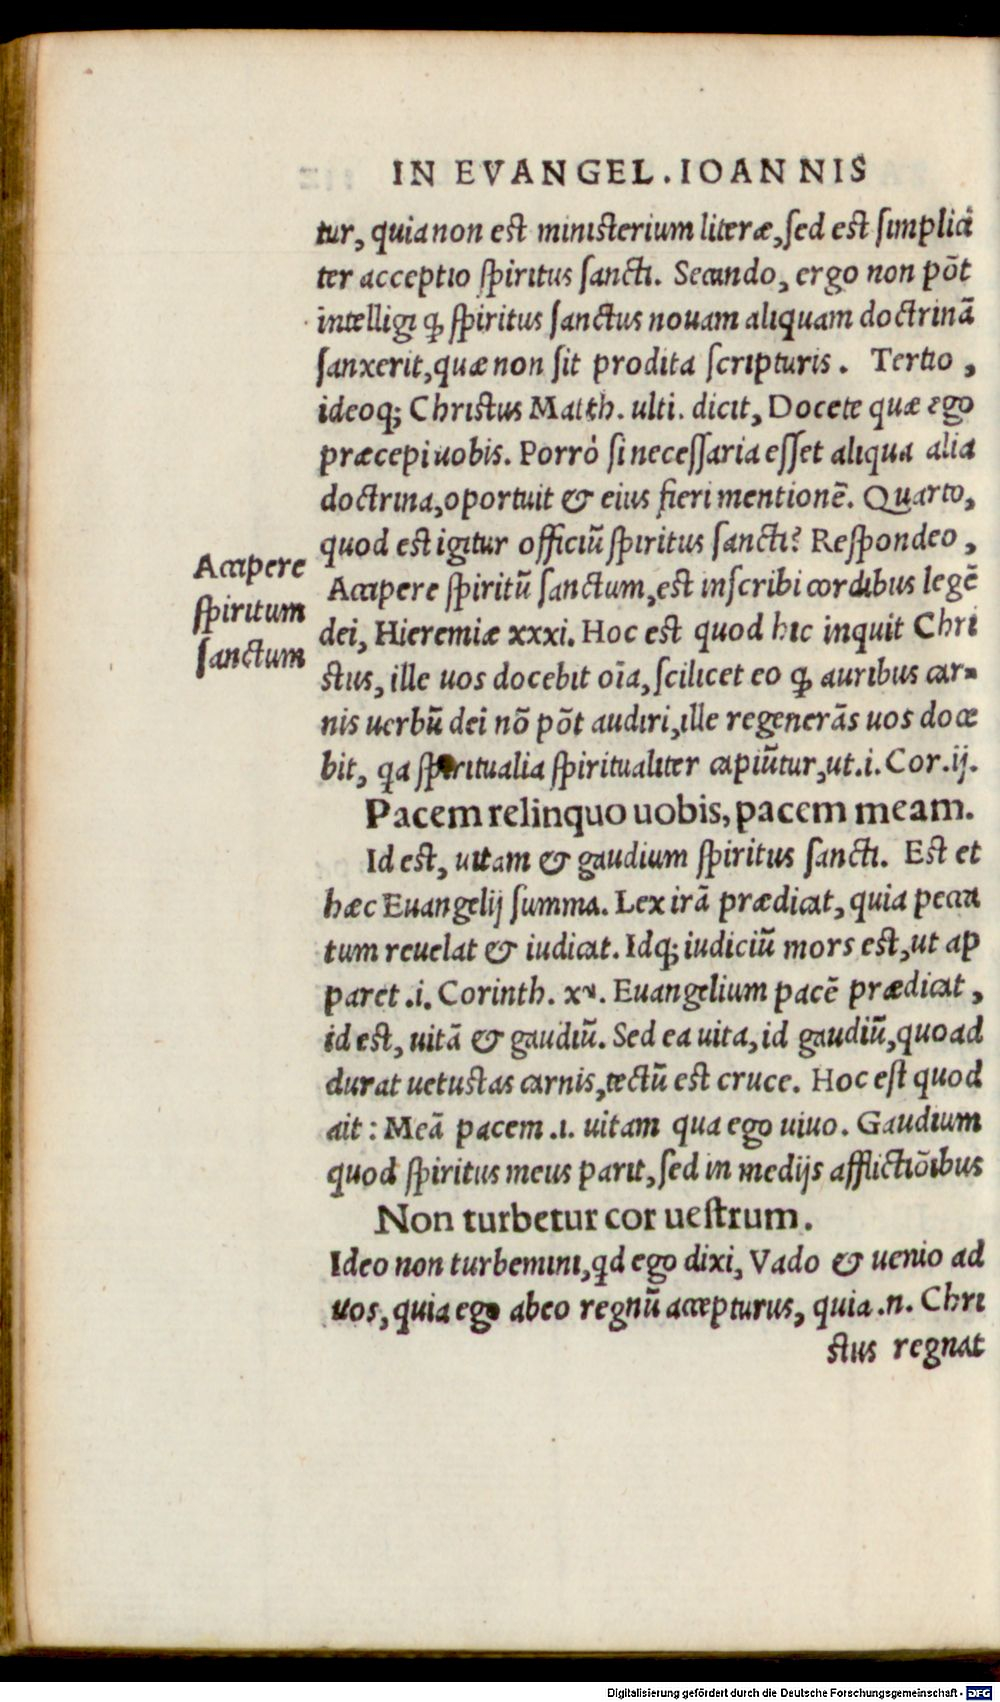 IN EVANGEL. IOANNIS
tur, quia non est ministerium literæ, sed est simplici
ter acceptio spiritus sancti. Secundo, ergo non põt
intelligi ꝙ spiritus sanctus nouam aliquam doctrinã
sanxerit, quæ non sit prodita scripturis. Tertio,
ideoq; Christus Matth. ulti. dicit, Docete quæ ego
præcepi uobis. Porrò si necessaria esset aliqua alia
doctrina, oportuit & eius fieri mentionẽ. Quarto,
quod est igitur officiũ spiritus sancti? Respondeo,
Accipere
spiritum
sanctum
Accipere spiritũ sanctum, est inscribi cordibus legẽ
dei, Hieremiæ xxxi. Hoc est quod hic inquit Chri
stus, ille uos docebit oĩa, scilicet eo ꝙ auribus car-
nis uerbũ dei nõ põt audiri, ille regenerãs uos doce
bit, qa spiritualia spiritualiter capiũtur, ut .i. Cor. ij.
Pacem relinquo uobis, pacem meam.
Id est, uitam & gaudium spiritus sancti. Est et
hæc Euangelij summa. Lex irã prædicat, quia pecca
tum reuelat & iudicat. Idq; iudiciũ mors est, ut ap
paret .i. Corinth. xv. Euangelium pacẽ prædicat,
id est, uitã & gaudiũ. Sed ea uita, id gaudiũ, quoad
durat uetustas carnis, tectũ est cruce. Hoc est quod
ait: Meã pacem .i. uitam qua ego uiuo. Gaudium
quod spiritus meus parit, sed in medijs afflictiõibus
Non turbetur cor uestrum.
Ideo non turbemini, qd ego dixi, Vado & uenio ad
uos, quia ego abeo regnũ accepturus, quia .n. Chri
stus regnat
Digitalisierung gefördert durch die Deutsche Forschungsgemeinschaft - DFG